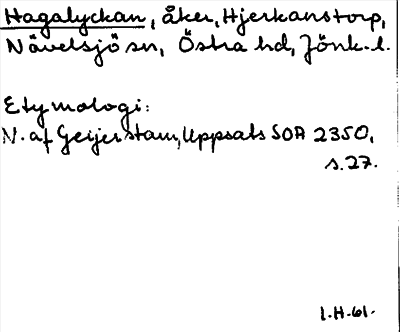 Hagalyckan, åker, Hjerkanstorp,
Nävelsjö sn, Östra hd, Jönk. l.
Etymologi:
N. af Geijerstam, Uppsats SOA 2350,
s. 27.
I.H-61.